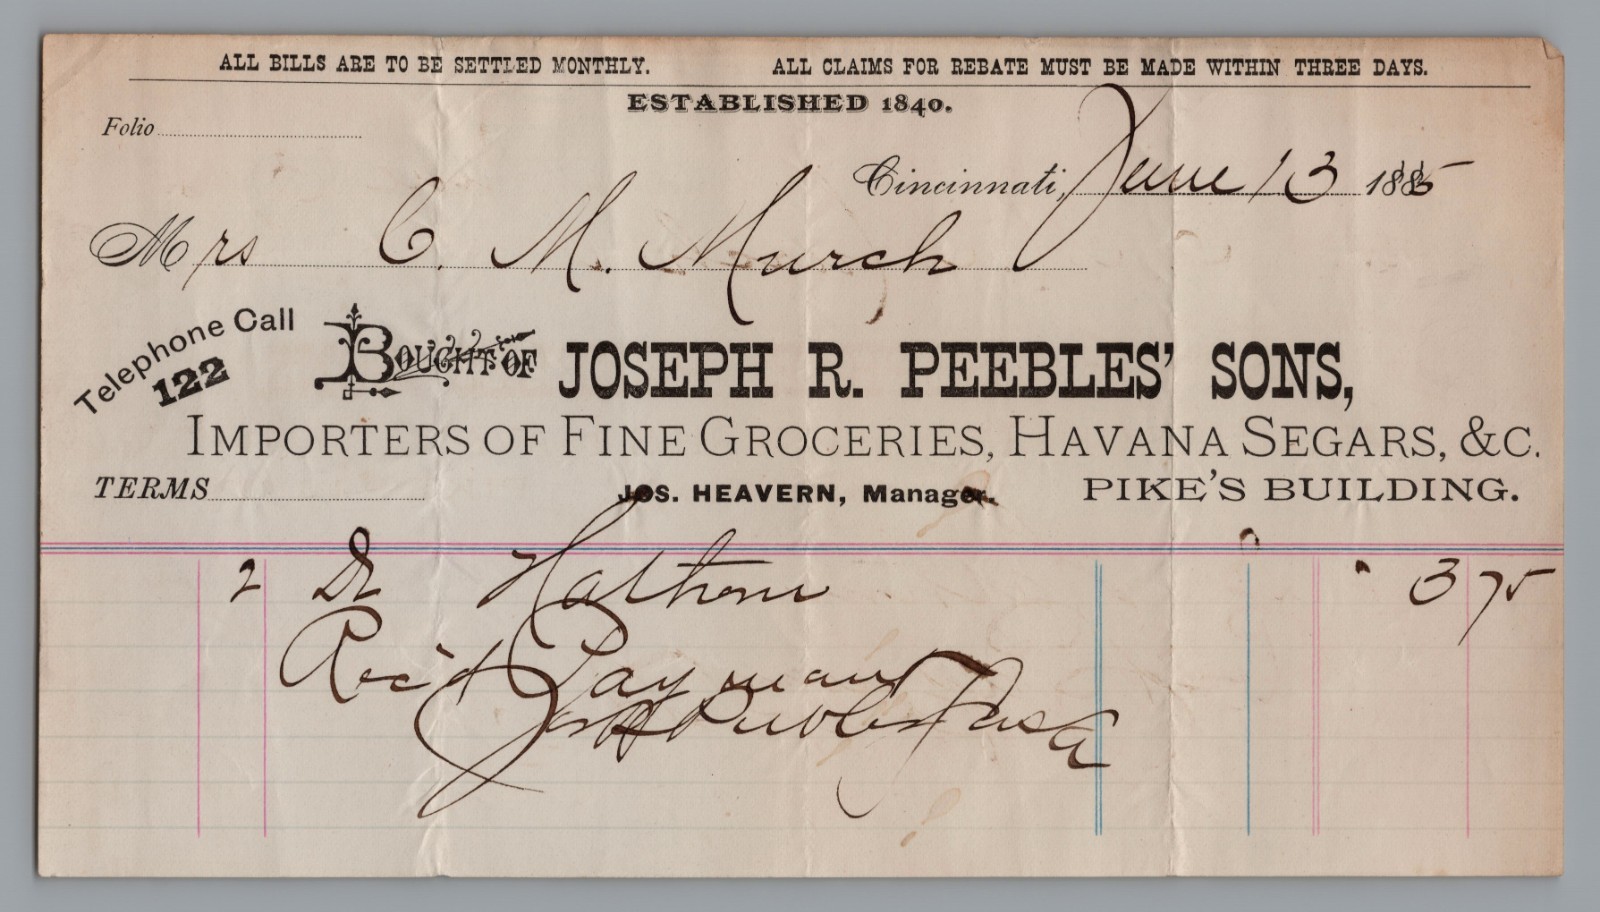 ALL BILLS ARE TO BE SETTLED MONTHLY. ALL CLAIMS FOR REBATE MUST BE MADE WITHIN THREE DAYS.
ESTABLISHED 1840.
Folio
Cincinnati, June 13 1885
Mrs C. M. Murch
Telephone Call 122
BOUGHT OF JOSEPH R. PEEBLES' SONS,
IMPORTERS OF FINE GROCERIES, HAVANA SEGARS, &C.
TERMS JOS. HEAVERN, Manager. PIKE'S BUILDING.
2 3 75
Rec'd Payment
Jos R Peebles Sons